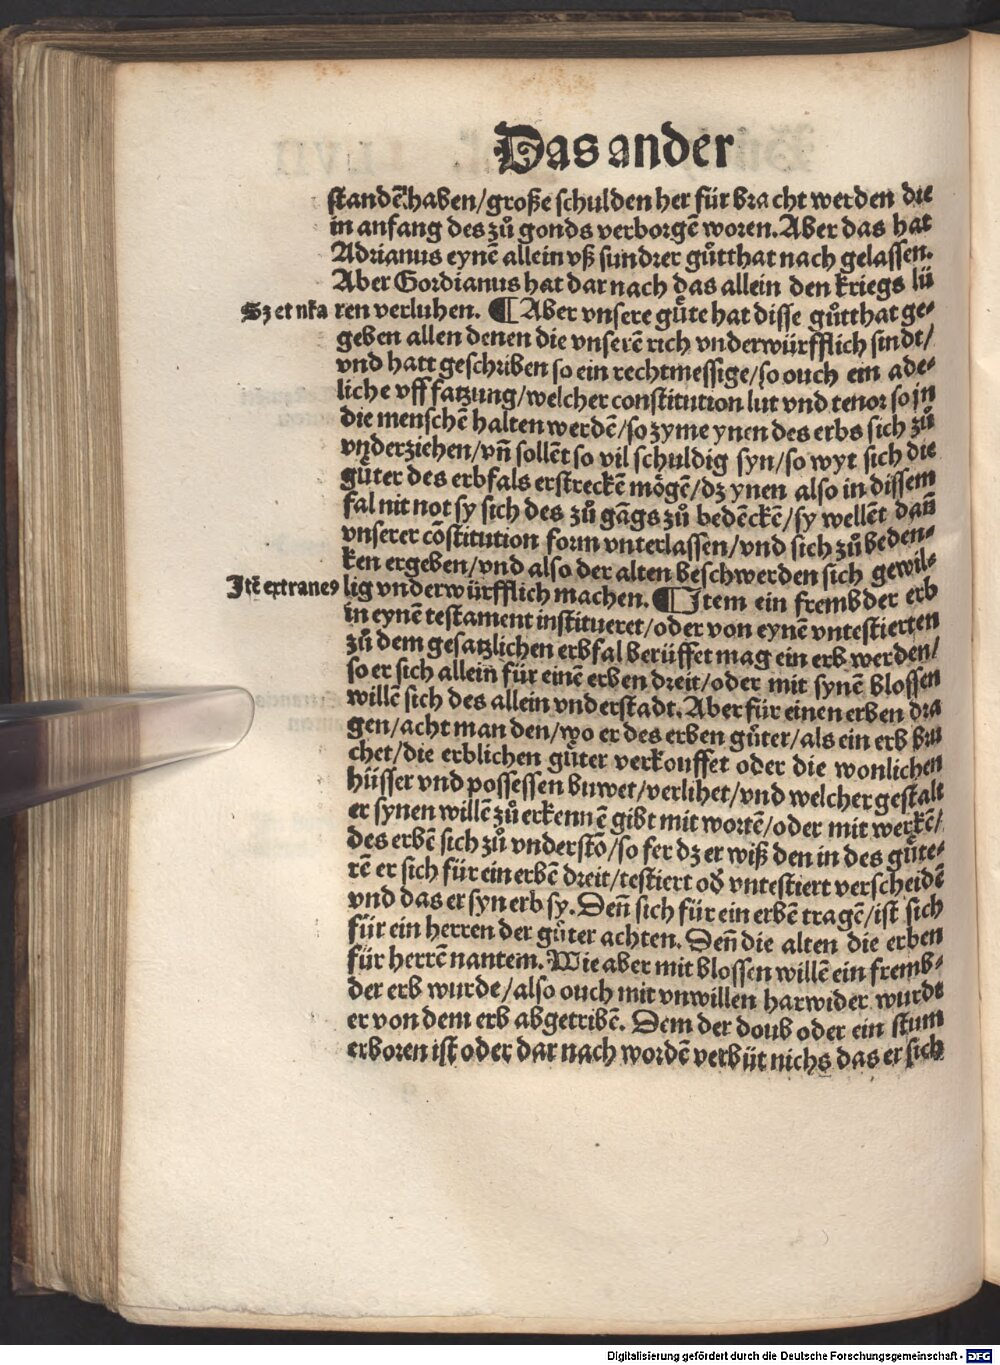 Das ander
standē haben/große schulden her für bracht werden die
in anfang des zů gonds verborgē woren. Aber das hat
Adrianus eynē allein vß sundrer gůtthat nach gelassen.
Aber Gordianus hat dar nach das allein den kriegs lü
Sz et nr̄a
ren verluhen. ¶ Aber vnsere gůte hat disse gůtthat ge-
geben allen denen die vnserē rich vnderwürfflich sindt/
vnd hatt geschriben so ein rechtmessige/so ouch ein ade-
liche vff satzung/welcher constitution lut vnd tenor so jn
die menschē halten werdē/so zyme ynen des erbs sich zů
vnderziehen/vn̄ sollēt so vil schuldig syn/so wyt sich die
gůter des erbfals erstreckē mögē/dz ynen also in dissem
fal nit not sy sich des zů gāgs zů bedēckē/sy wellēt dan̄
vnserer cōstitution form vnterlassen/vnd sich zů beden-
ken ergeben/vnd also der alten beschwerden sich gewil-
Itē extraneꝰ
lig vnderwürfflich machen. ¶ Item ein frembder erb
in eynē testament institueret/oder von eynē vntestierten
zů dem gesatzlichen erbfal berüffet mag ein erb werden/
so er sich allein für einē erben dreit/oder mit synē blossen
willē sich des allein vnderstadt. Aber für einen erben dra
gen/acht man den/wo er des erben gůter/als ein erb bru
chet/die erblichen gůter verkouffet oder die wonlichen
hüsser vnd possessen buwet/verlihet/vnd welcher gestalt
er synen willē zů erkennē gibt mit wortē/oder mit werkē/
des erbē sich zů vnderstō/so fer dz er wiß den in des gůte-
rē er sich für ein erbē dreit/testiert oð vntestiert verscheidē
vnd das er syn erb sy. Den̄ sich für ein erbē tragē/ist sich
für ein herren der gůter achten. Den̄ die alten die erben
für herrē nantem. Wie aber mit blossen willē ein fremb-
der erb wurde/also ouch mit vnwillen harwider wurde
er von dem erb abgetribē. Dem der doub oder ein stum
erboren ist oder dar nach wordē verbüt nichs das er sich
Digitalisierung gefördert durch die Deutsche Forschungsgemeinschaft - DFG